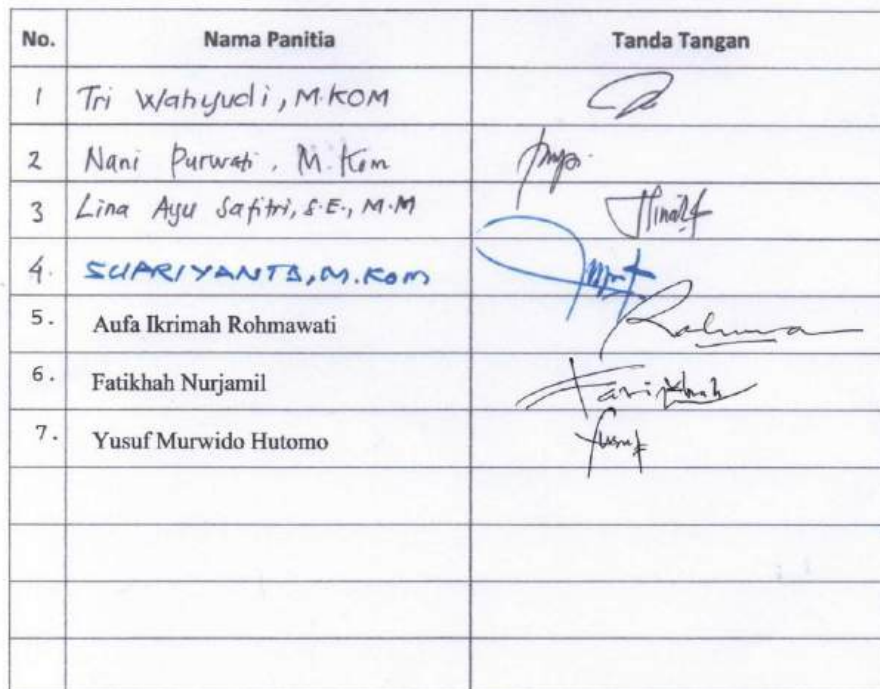 No. Nama Panitia Tanda Tangan
1 Tri Wahyudi, M.KOM
2 Nani Purwati, M.Kom
3 Lina Ayu Safitri, S.E., M.M
4. SUPARIYANTO, M.KOM
5. Aufa Ikrimah Rohmawati
6. Fatikhah Nurjamil
7. Yusuf Murwido Hutomo